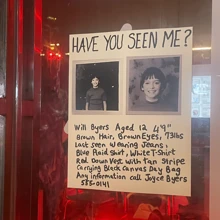 HAVE YOU SEEN ME?
Will Byers Aged 12 4'9"
Brown Hair, Brown Eyes, 73lbs
Last seen Wearing Jeans,
Blue Plaid Shirt, White T-Shirt
Red Down Vest with Tan Stripe
Carrying Black Canvas Day Bag
Any information call Joyce Byers
555-0141